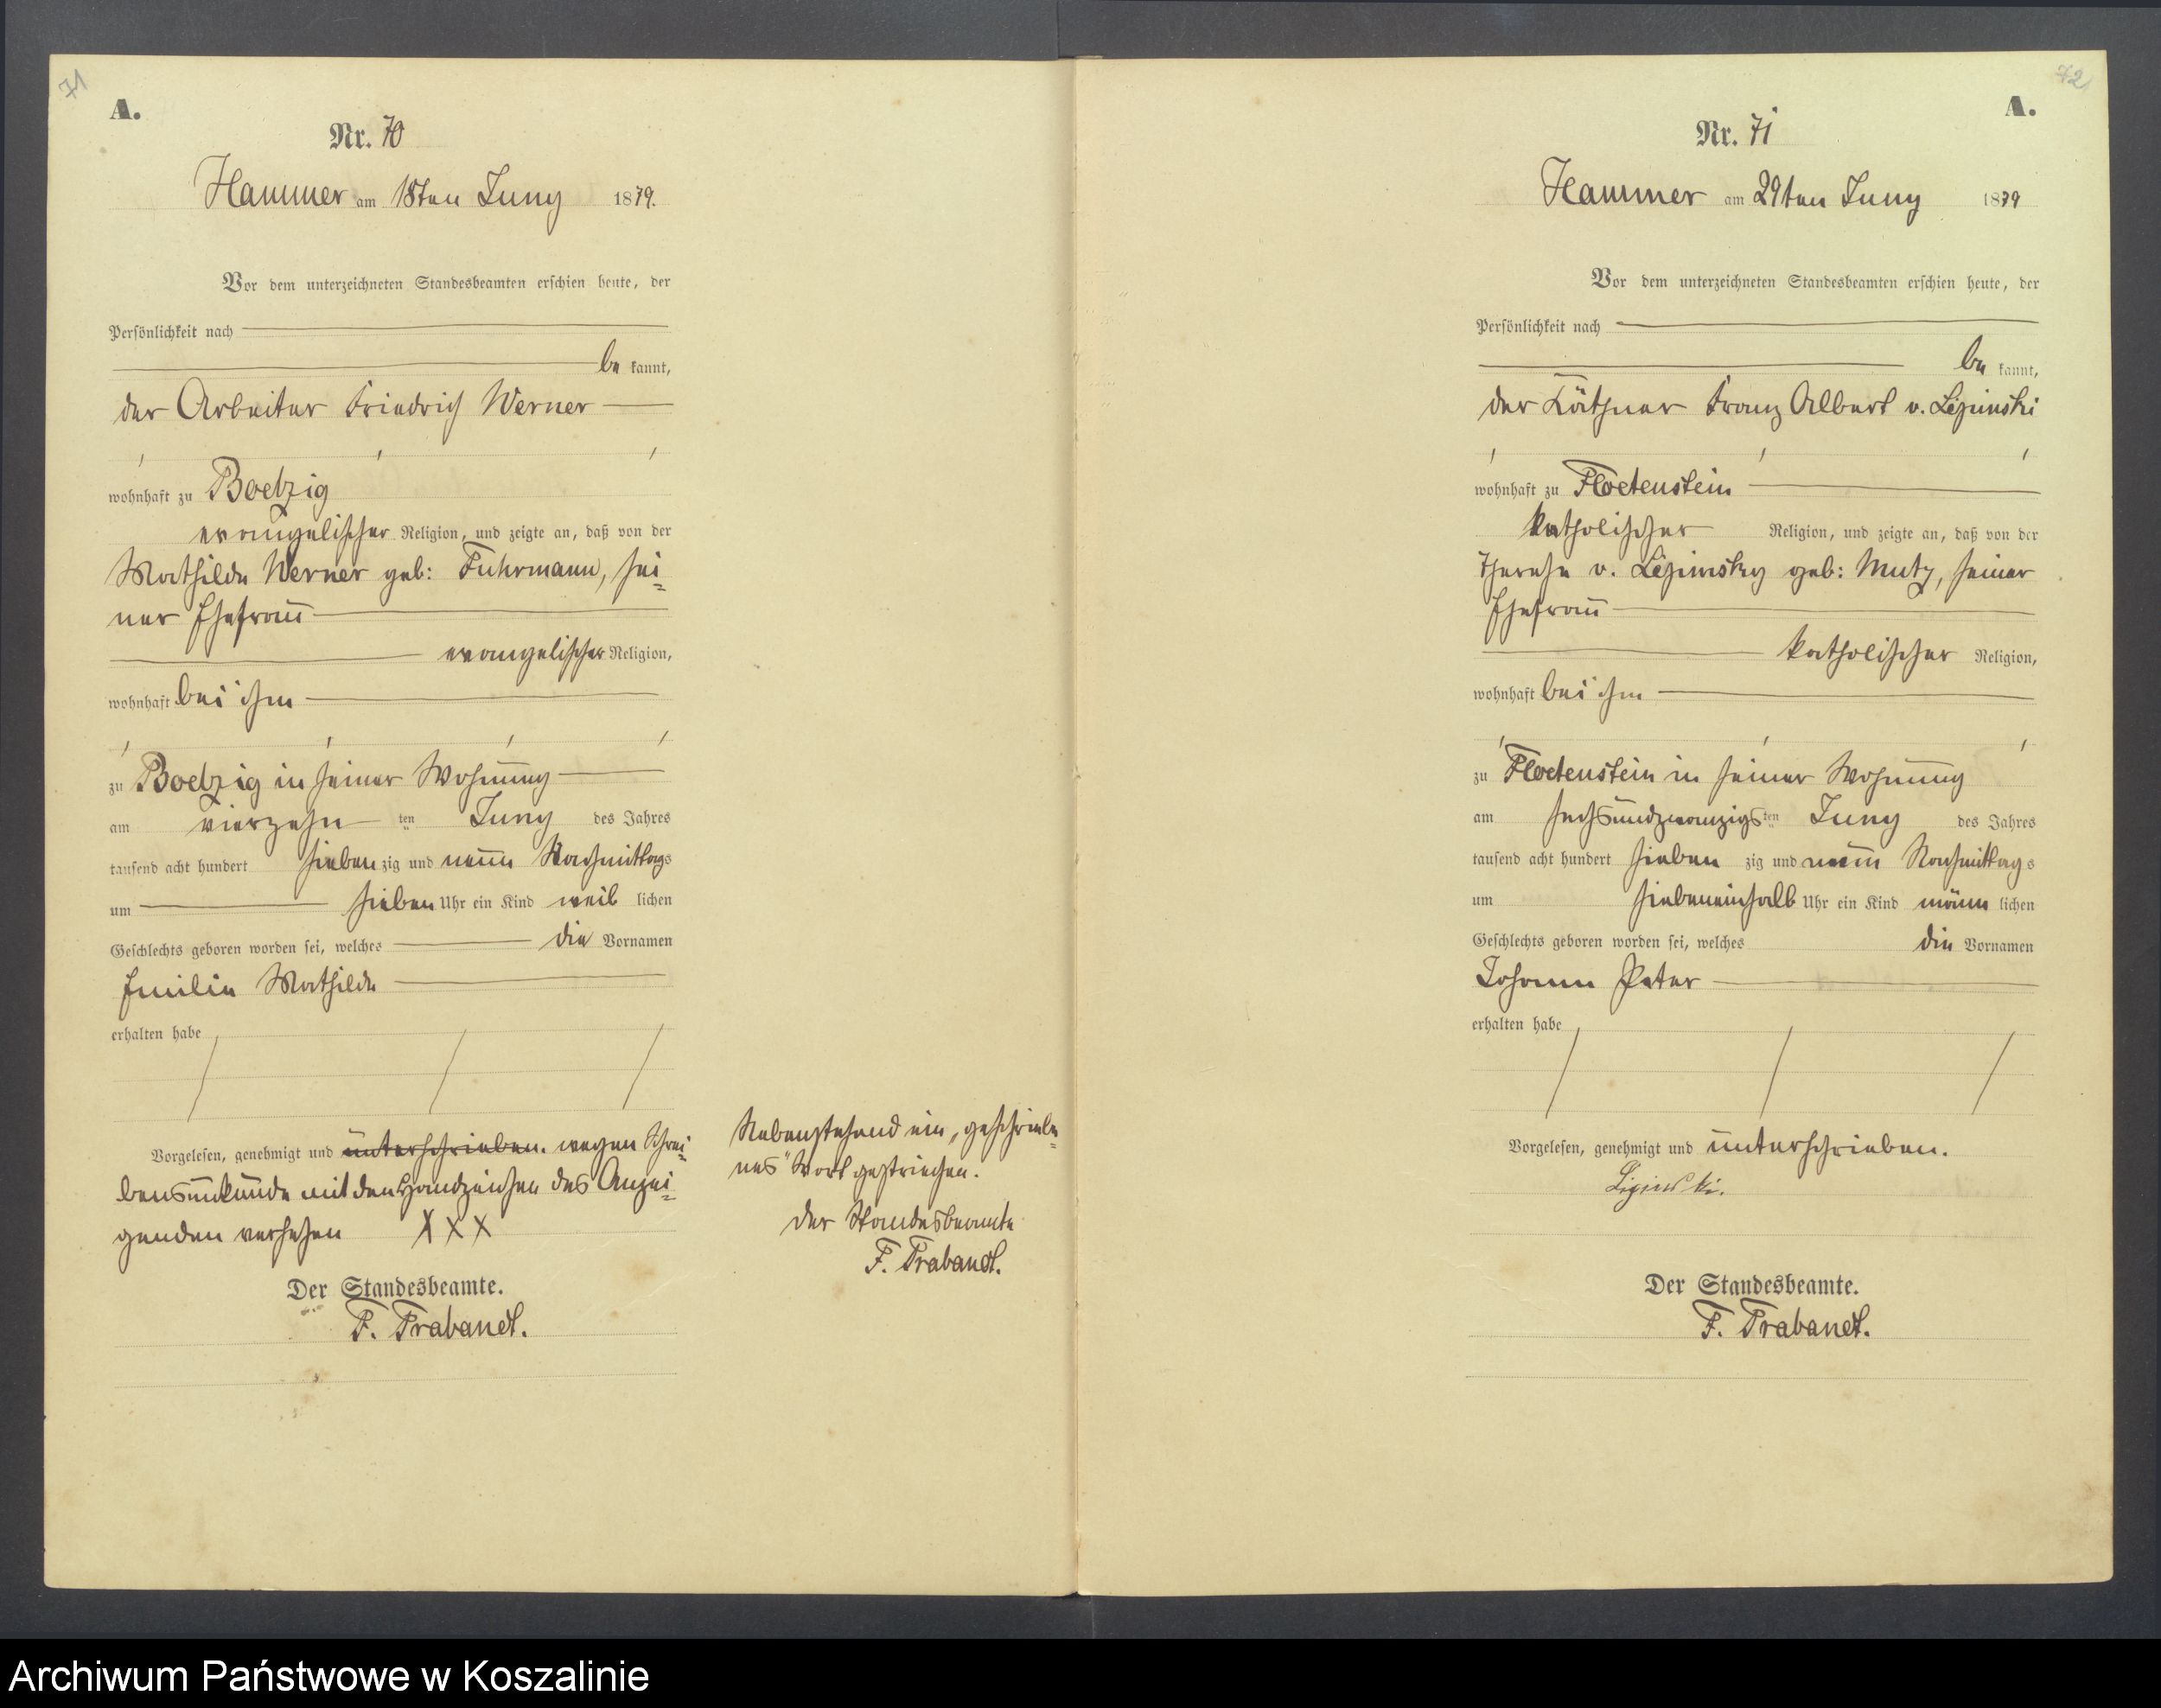 71
A.
Nr. 70
Hammer am 18ten Juny 1879.
Vor dem unterzeichneten Standesbeamten erschien heute, der
Persönlichkeit nach
be kannt,
der Arbeiter Friedrich Werner
wohnhaft zu Boetzig
evangelischer Religion, und zeigte an, daß von der
Mathilde Werner geb: Fuhrmann, sei=
ner Ehefrau
evangelischer Religion,
wohnhaft bei ihm
zu Boetzig in seiner Wohnung
am vierzehn ten Juny des Jahres
tausend acht hundert sieben zig und neun Nachmittags
um sieben Uhr ein Kind weib lichen
Geschlechts geboren worden sei, welches die Vornamen
Emilie Mathilde
erhalten habe
Vorgelesen, genehmigt und unterschrieben. wegen Schrei=
bensunkunde mit den Handzeichen des Anzei=
genden versehen XXX
Der Standesbeamte.
F. Trabandt.
Nebenstehend ein „geschriebe=
nes" Wort gestrichen.
Der Standesbeamte
F. Trabandt.
72
A.
Nr. 71
Hammer am 29ten Juny 1879
Vor dem unterzeichneten Standesbeamten erschien heute, der
Persönlichkeit nach
be kannt,
der Käthner Franz Albert v. Lipinski
wohnhaft zu Floetenstein
katholischer Religion, und zeigte an, daß von der
Therese v. Lipinsky geb: Mutz, seiner
Ehefrau
katholischer Religion,
wohnhaft bei ihm
zu Floetenstein in seiner Wohnung
am sechsundzwanzigs ten Juny des Jahres
tausend acht hundert sieben zig und neun Nachmittags
um siebeneinhalb Uhr ein Kind männ lichen
Geschlechts geboren worden sei, welches die Vornamen
Johann Peter
erhalten habe
Vorgelesen, genehmigt und unterschrieben.
Lipinski.
Der Standesbeamte.
F. Trabandt.
Archiwum Państwowe w Koszalinie